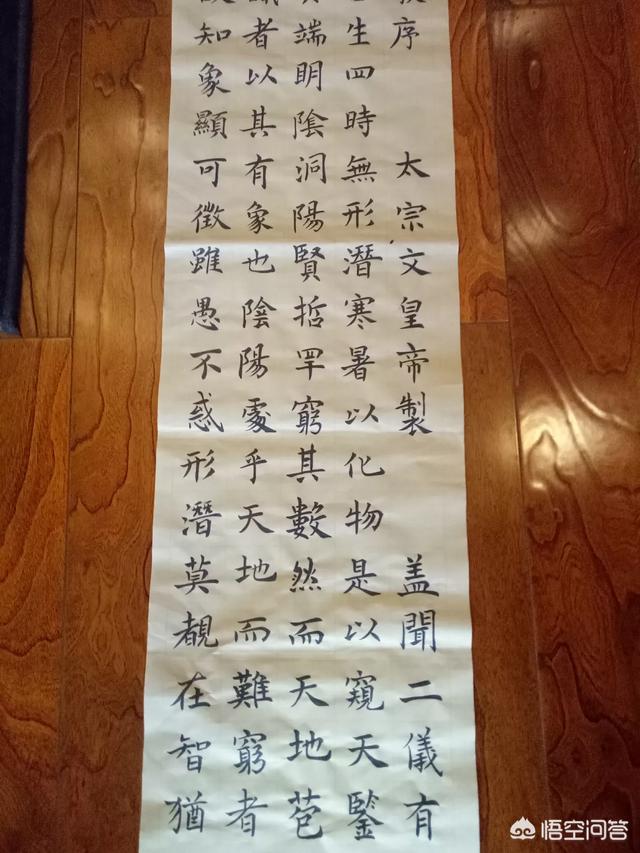 序 太宗文皇帝製 盖聞二儀有
生四時無形潛寒暑以化物是以窺天鑒
端眀陰洞陽賢哲罕窮其數然而天地苞
識者以其有象也陰陽處乎天地而難窮者
知象顯可徵雖愚不惑形潛莫覩在智猶
悟空问答